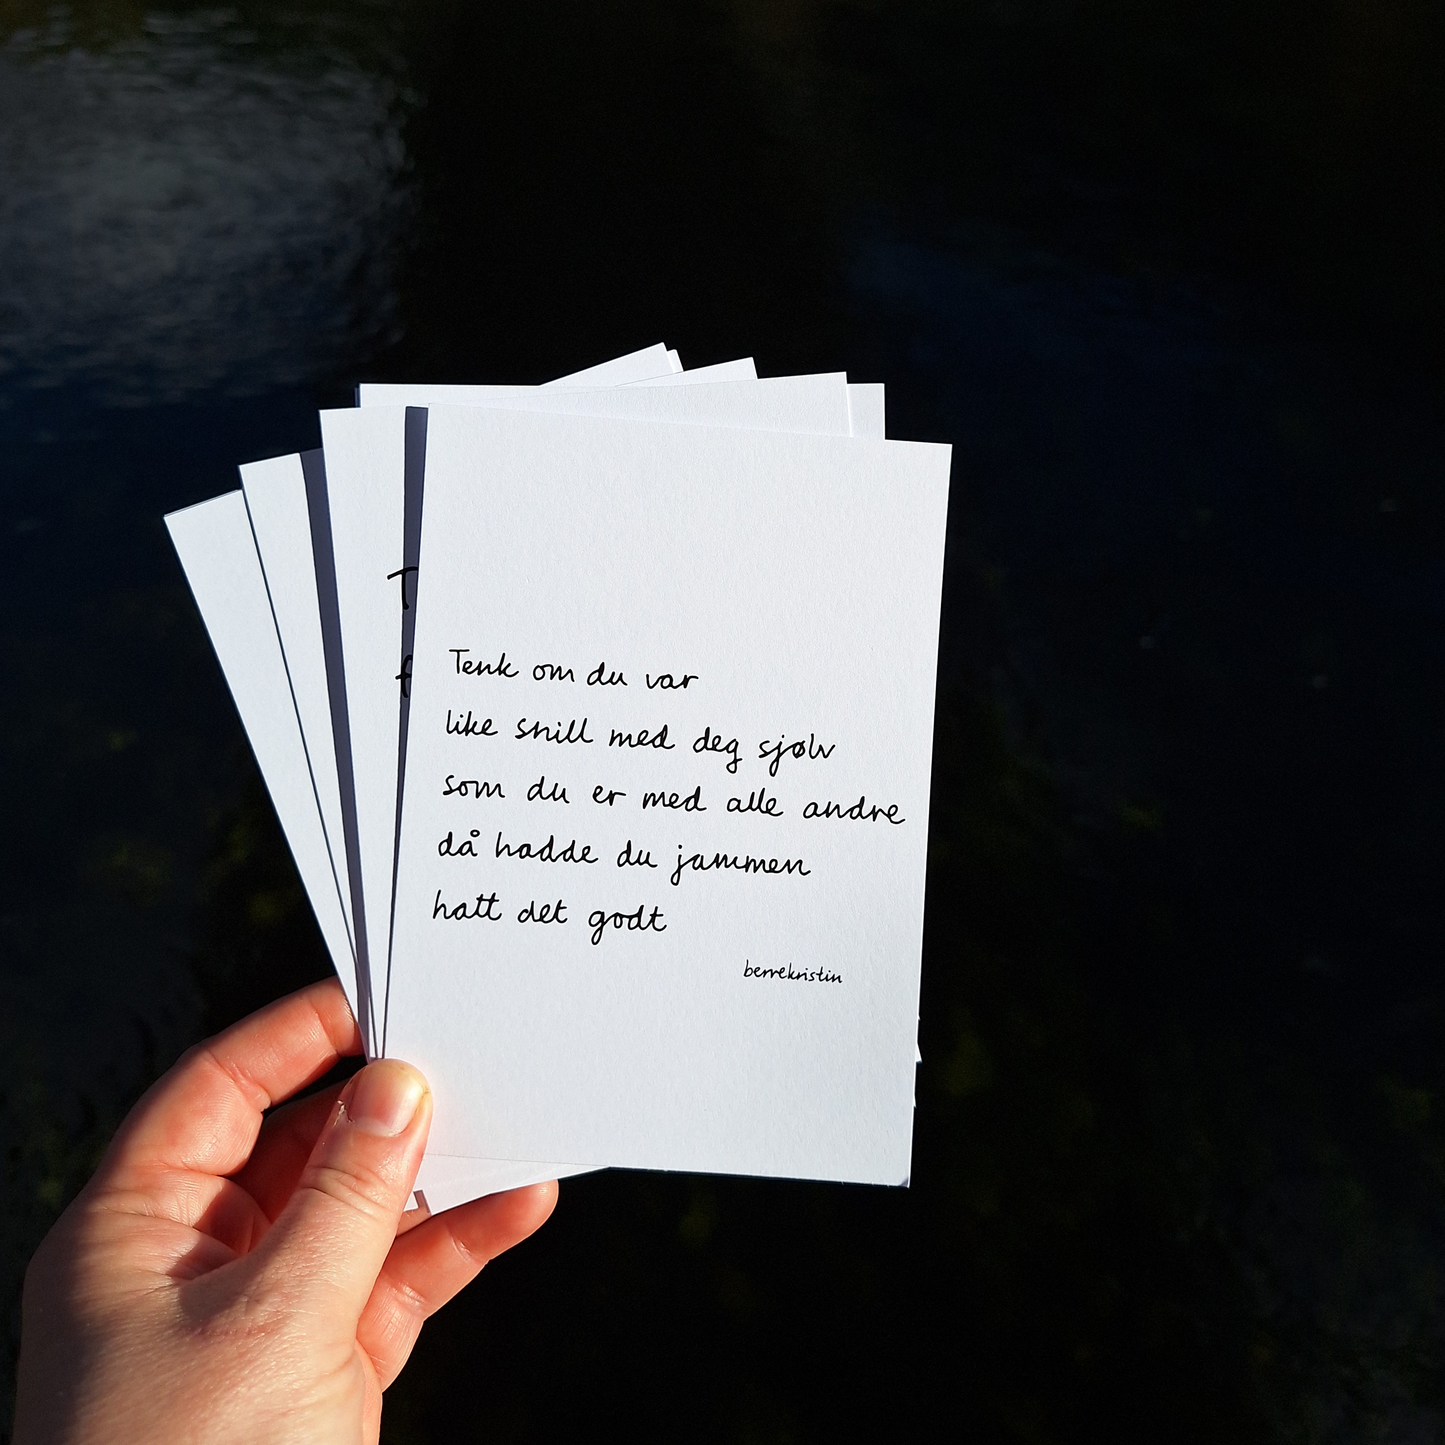 Tenk om du var
like snill med deg sjølv
som du er med alle andre
då hadde du jammen
hatt det godt
berrekristin